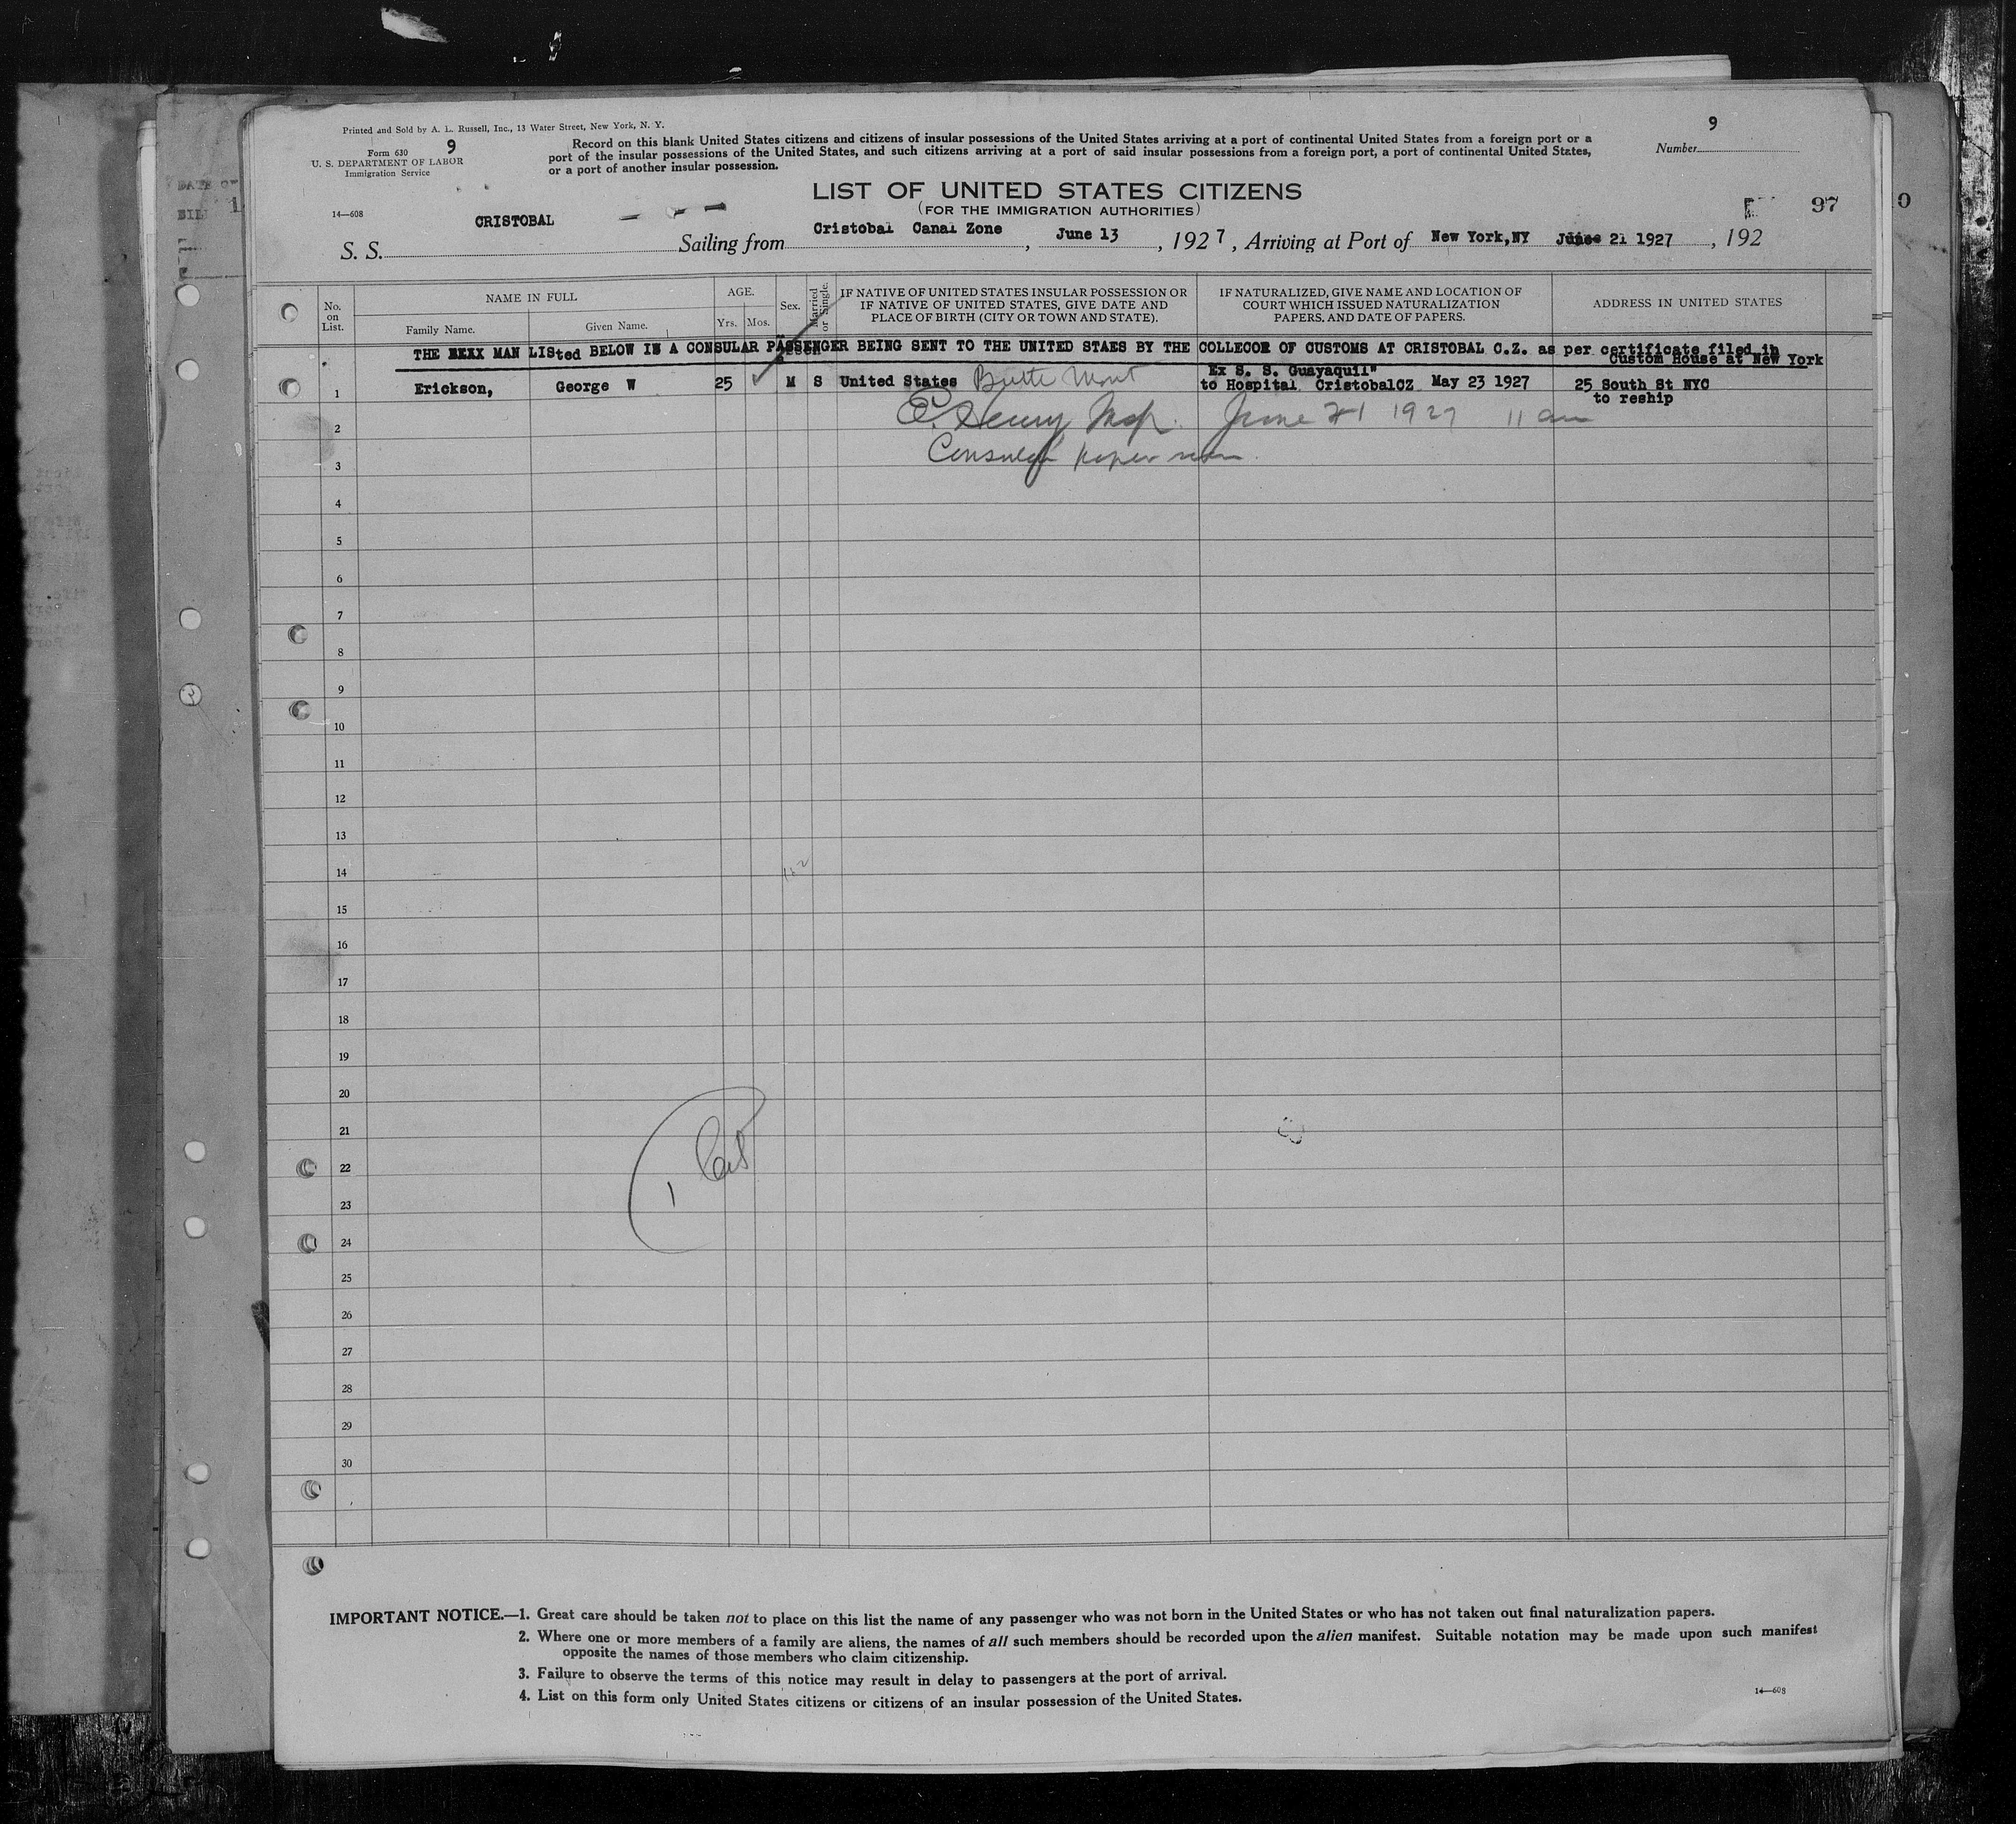 Printed and Sold by A. L. Russell, Inc., 13 Water Street, New York, N. Y.
Form 630 9
U. S. DEPARTMENT OF LABOR
Immigration Service
14—608
Record on this blank United States citizens and citizens of insular possessions of the United States arriving at a port of continental United States from a foreign port or a
port of the insular possessions of the United States, and such citizens arriving at a port of said insular possessions from a foreign port, a port of continental United States,
or a port of another insular possession.
9
Number
LIST OF UNITED STATES CITIZENS
(FOR THE IMMIGRATION AUTHORITIES)
97
0
S. S. CRISTOBAL Sailing from Cristobal Canal Zone, June 13, 1927, Arriving at Port of New York,NY June 21 1927, 192
No. on List.
NAME IN FULL
Family Name.
Given Name.
AGE.
Yrs.
Mos.
Sex.
Married or Single.
IF NATIVE OF UNITED STATES INSULAR POSSESSION OR
IF NATIVE OF UNITED STATES, GIVE DATE AND
PLACE OF BIRTH (CITY OR TOWN AND STATE).
IF NATURALIZED, GIVE NAME AND LOCATION OF
COURT WHICH ISSUED NATURALIZATION
PAPERS. AND DATE OF PAPERS.
ADDRESS IN UNITED STATES
THE MAN LISted BELOW IS A CONSULAR PASSENGER BEING SENT TO THE UNITED STAES BY THE COLLECOR OF CUSTOMS AT CRISTOBAL C.Z. as per certificate filed in
Custom House at New York
Ex S. S. Guayaquil"
1 Erickson, George W 25 M S United States Butte Mont to Hospital CristobalCZ May 23 1927 25 South St NYC
to reship
2 E. Henry Insp. June 21 1927 11 am
3 Consular paper seen.
4
5
6
7
8
9
10
11
12
13
14
15
16
17
18
19
20
21
22
23
24
25
26
27
28
29
30
1
IMPORTANT NOTICE.—1. Great care should be taken not to place on this list the name of any passenger who was not born in the United States or who has not taken out final naturalization papers.
2. Where one or more members of a family are aliens, the names of all such members should be recorded upon the alien manifest. Suitable notation may be made upon such manifest
opposite the names of those members who claim citizenship.
3. Failure to observe the terms of this notice may result in delay to passengers at the port of arrival.
4. List on this form only United States citizens or citizens of an insular possession of the United States.
14—608